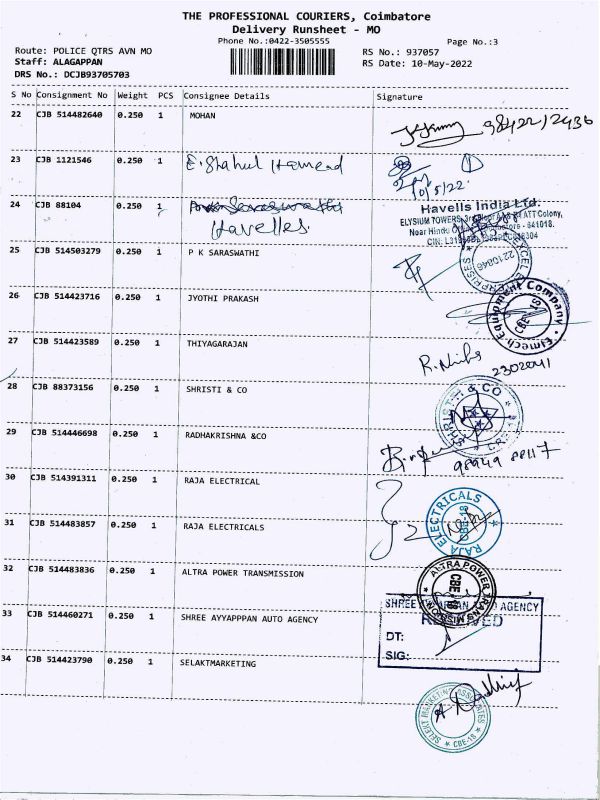 THE PROFESSIONAL COURIERS, Coimbatore
Delivery Runsheet - MO
Phone No.:0422-3505555
Page No.:3
Route: POLICE QTRS AVN MO
RS No.: 937057
Staff: ALAGAPPAN
RS Date: 10-May-2022
DRS No.: DCJB93705703
S No Consignment No Weight PCS Consignee Details Signature
22 CJB 514482640 0.250 1 MOHAN
23 CJB 1121546 0.250 1 E. Shahul Hameed
10/5/22
24 CJB 88104 0.250 1
Havelles.
Havells India Ltd.
ELYSIUM TOWERS, ATT Colony,
Near Hindu - 641018.
25 CJB 514503279 0.250 1 P K SARASWATHI
2210846
26 CJB 514423716 0.250 1 JYOTHI PRAKASH
Elmech Equipment Company
CBE-18
27 CJB 514423589 0.250 1 THIYAGARAJAN
2302041
28 CJB 88373156 0.250 1 SHRISTI & CO
SHRISTI & CO
29 CJB 514446698 0.250 1 RADHAKRISHNA &CO
98949 88117
30 CJB 514391311 0.250 1 RAJA ELECTRICAL
31 CJB 514483857 0.250 1 RAJA ELECTRICALS
RAJA ELECTRICALS
CBE-18
32 CJB 514483836 0.250 1 ALTRA POWER TRANSMISSION
ALTRA POWER TRANSMISSION
CBE-18
33 CJB 514460271 0.250 1 SHREE AYYAPPPAN AUTO AGENCY
SHREE AUTO AGENCY
RECEIVED
DT:
SIG:
34 CJB 514423790 0.250 1 SELAKTMARKETING
SELEKT MARKETING ASSOCIATES
CBE-18